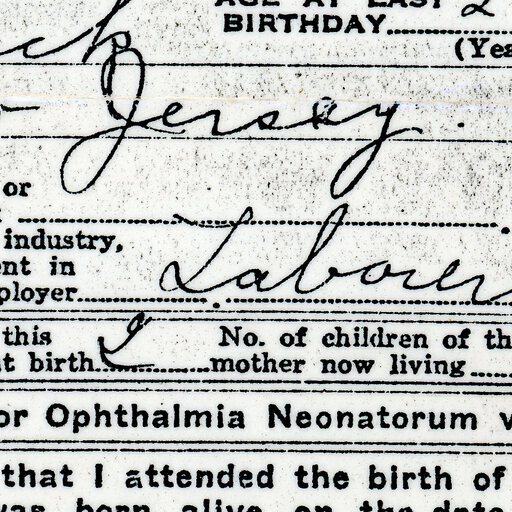 AGE AT LAST 2
BIRTHDAY
(Yea
ck
Jersey
or
industry,
ent in
ployer
Laborer
this
No. of children of th
t birth 2
mother now living
or Ophthalmia Neonatorum v
that I attended the birth of
was born alive on the date